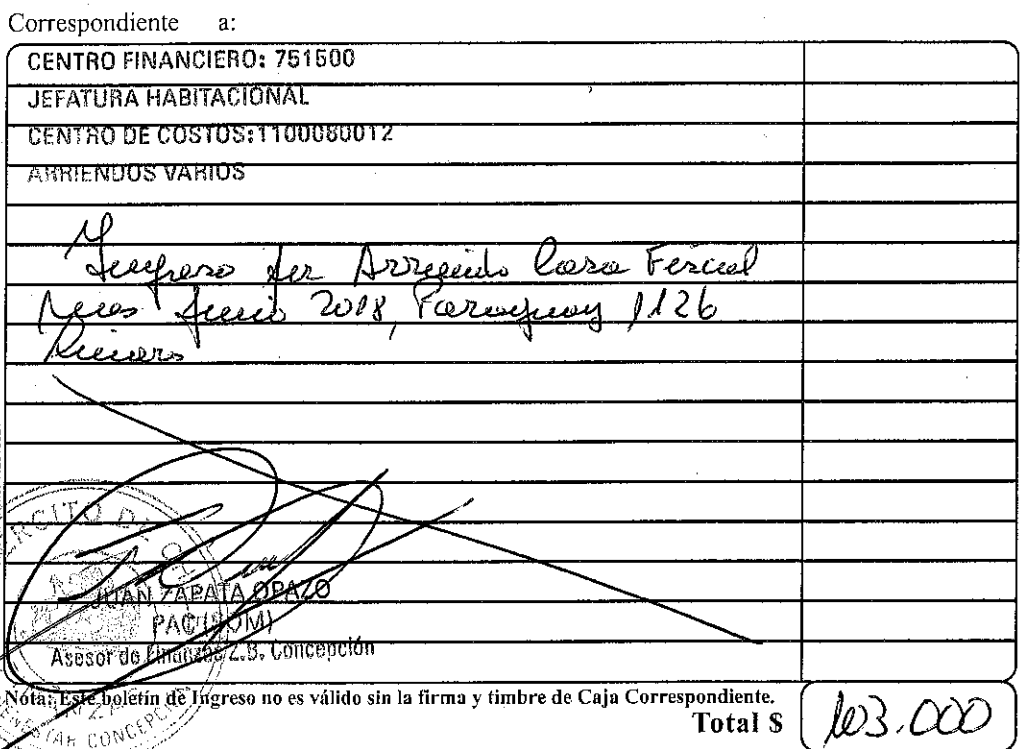 Correspondiente a:
CENTRO FINANCIERO: 751500
JEFATURA HABITACIONAL
CENTRO DE COSTOS:1100080012
ARRIENDOS VARIOS
Ingreso por Arriendo Casa Fiscal
mes Junio 2018, Paraguay 1126
EJÉRCITO DE
JUAN ZAPATA OPAZO
PAC (SOM)
Asesor de Finanzas Z.B. Concepción
Nota: Este boletín de Ingreso no es válido sin la firma y timbre de Caja Correspondiente.
Total $ 103.000